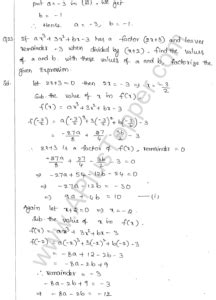 put a = -3 in (ii), we get
b = -1
∴ Hence a = -3, b = -1.
Q23 If ax³+3x²+bx-3 has a factor (2x+3) and leaves
remainder -3 when divided by (x+2), find the values
of a and b. With these values of a and b, factorize the
given expression.
Sol. let 2x+3=0 then 2x=-3 ⇒ x=-3/2
Sub the value of x in f(x)
f(x) = ax³+3x²+bx-3
f(-3/2) = a(-3/2)³+3(-3/2)²+b(-3/2)-3
= -27a/8 + 27/4 - 3b/2 - 3
∴ 2x+3 is a factor of f(x), remainder = 0
-27a/8 + 27/4 - 3b/2 - 3 = 0
⇒ -27a+54-12b-24=0
⇒ -27a-12b=-30
⇒ 9a+4b=10 (i)
Again let x+2=0 ⇒ x=-2
Sub the value of x in f(x)
f(x) = ax³+3x²+bx-3
f(-2) = a(-2)³+3(-2)²+b(-2)-3
= -8a+12-2b-3
= -8a-2b+9
∴ remainder = -3
-8a-2b+9=-3
⇒ -8a-2b=-12